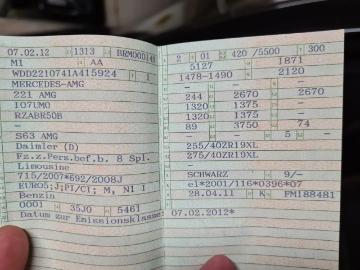 07.02.12 1313 BRM000148
M1 AA
WDD2210741A415924 1
MERCEDES-AMG
221 AMG
107UM0
RZABR50B
-
S63 AMG
Daimler (D)
Fz.z.Pers.bef.b. 8 Spl.
Limousine
715/2007*692/2008J
EURO5;J;PI/CI; M, N I
Benzin
0001 35J0 5461
Datum zur Emissionsklasse:
2 01 420 /5500 300
5127 1871
1478-1490 2120
- - -
244 2670 2670
1320 1375 -
1320 1375 -
89 3750 74
- - 5 -
255/40ZR19XL
275/40ZR19XL
-
SCHWARZ 9/-
e1*2001/116*0396*07
28.04.11 K FM188481
07.02.2012*